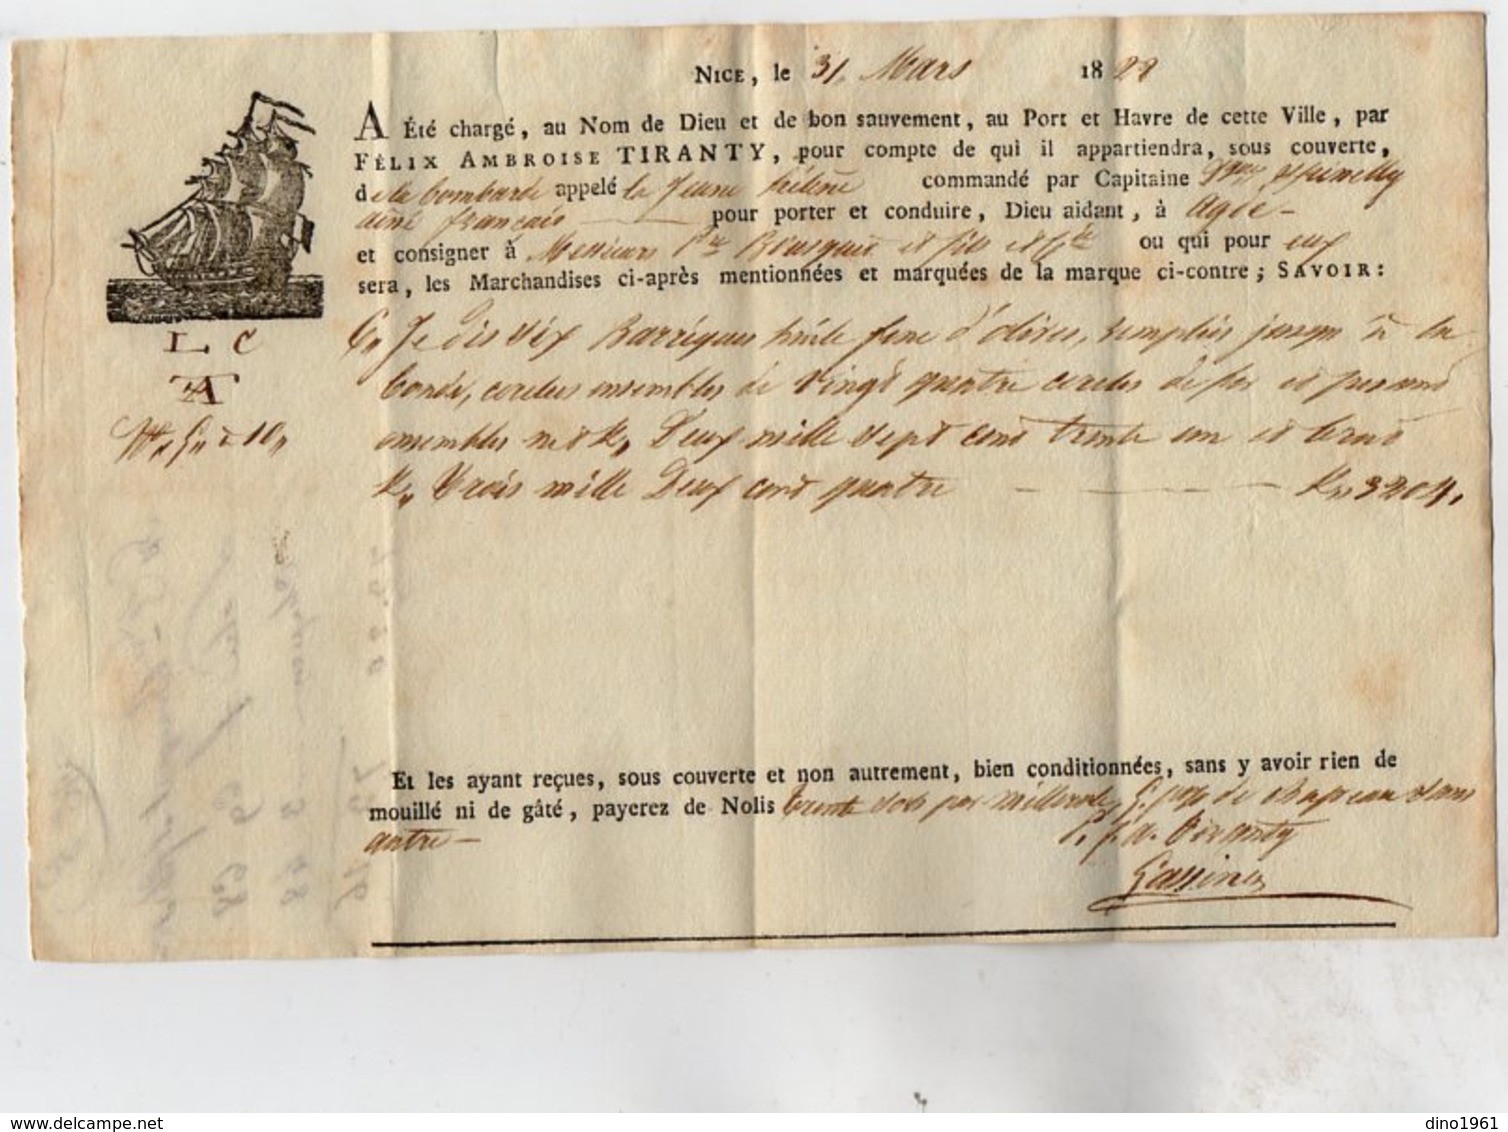 NICE, le 31 Mars 1828
A Été chargé, au Nom de Dieu et de bon sauvement, au Port et Havre de cette Ville, par
FÉLIX AMBROISE TIRANTY, pour compte de qui il appartiendra, sous couverte,
de la bombarde appelé la Jeune hélène commandé par Capitaine
ainé français pour porter et conduire, Dieu aidant, à Agde
et consigner à Messieurs et fils et Cie ou qui pour eux
sera, les Marchandises ci-après mentionnées et marquées de la marque ci-contre; SAVOIR:
L C
A
Six Barriques huile fine d'olives, remplies jusqu'à la
bonde, cerclées ensembles de Vingt quatre cercles de fer et pesant
ensembles net K. Deux mille sept cent trente un et brut
K. Trois mille Deux cent quatre K. 3204.
Et les ayant reçues, sous couverte et non autrement, bien conditionnées, sans y avoir rien de
mouillé ni de gâté, payerez de Nolis trente sols par millerole, de chapeau sans
autre
P. f. a. Tiranty